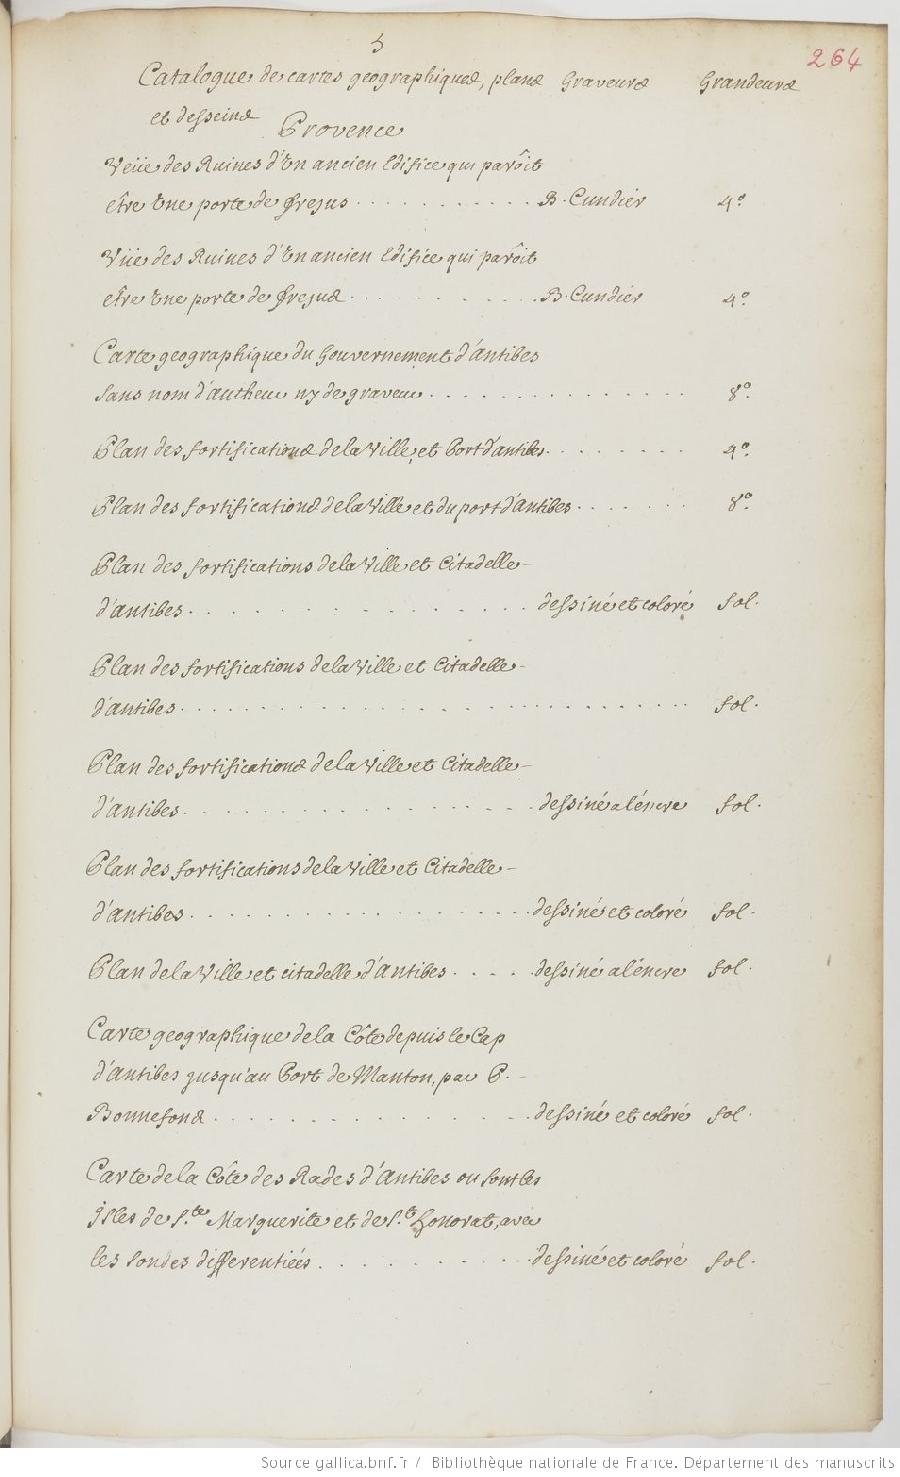 5
264
Catalogue de cartes geographiques, plans Graveurs Grandeurs
et desseins
Provence
Veüe des Ruines d'un ancien Edifice qui parôit
etre une porte de frejus . . . . . . . . . . . B. Cundier 4°
Vüe des Ruines d'un ancien Edifice qui parôit
etre une porte de frejus . . . . . . . . . . . B. Cundier 4°.
Carte geographique du Gouvernement d'Antibes
sans nom d'autheur ny de graveur . . . . . . . . . . . . . . 8°.
Plan des fortifications de la Ville, et Port d'antibes . . . . . . . 4°.
Plan des fortifications de la Ville et du port d'Antibes . . . . . . 8°.
Plan des fortifications de la Ville et Citadelle-
d'antibes . . . . . . . . . . . . . . . . dessiné et coloré fol.
Plan des fortifications de la Ville et Citadelle-
d'antibes . . . . . . . . . . . . . . . . . . . . . . . fol.
Plan des fortifications de la Ville et Citadelle-
d'antibes . . . . . . . . . . . . . . . . dessiné a l'éncre fol.
Plan des fortifications de la Ville et Citadelle-
d'antibes . . . . . . . . . . . . . . . . dessiné et coloré fol.
Plan de la Ville et citadelle d'Antibes . . . . dessiné a l'éncre fol.
Carte geographique de la Côte depuis le Cap
d'antibes jusqu'au Port de Manton, par P. -
Bonnefond . . . . . . . . . . . . . . . dessiné et coloré fol.
Carte de la Côte des Rades d'Antibes ou sont les
Isles de S.te Marguerite et de S.t honorat, avec
les sondes differentiées . . . . . . . . . . dessiné et coloré fol.
Source gallica.bnf.fr / Bibliothèque nationale de France. Département des manuscrits